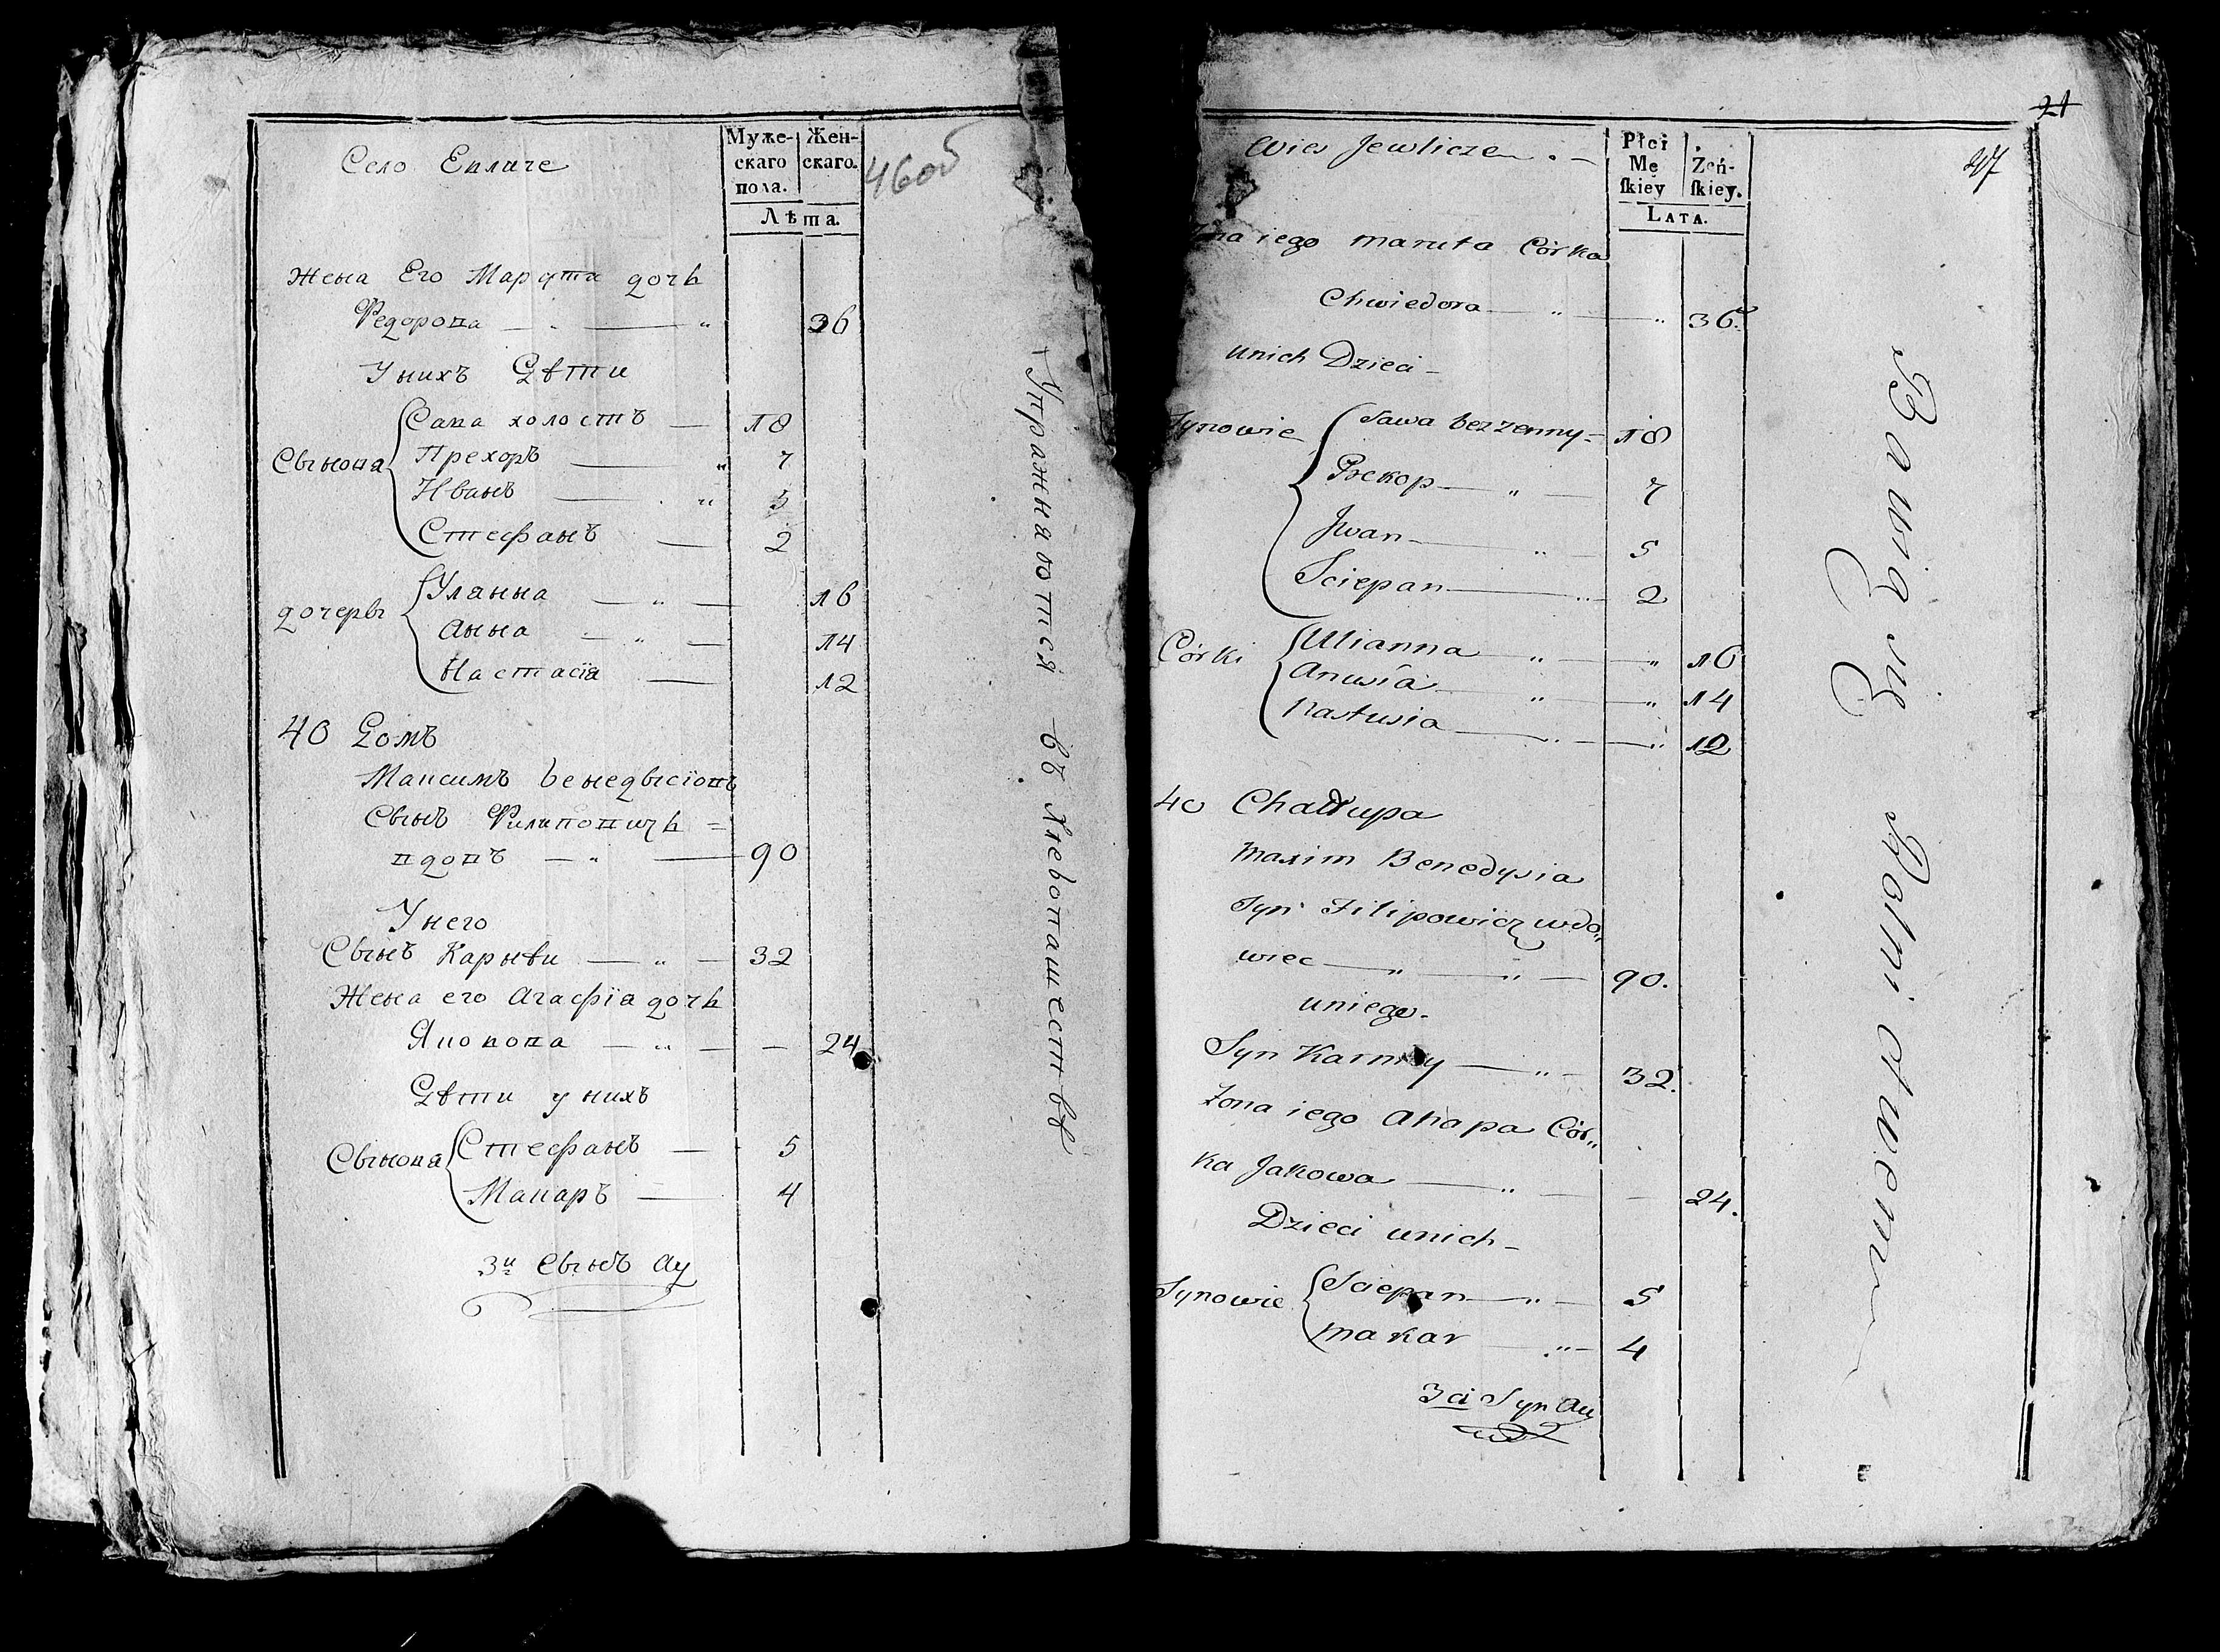 Село Евличе
Муже-
скаго
пола.
Жен-
скаго.
Лѣта.
46об
Жена Его Марута дочь
Федорова — „ — „ 36
У нихъ Дѣти
Сынова
Сава холостъ — 18
Прехоръ — „ 7
Иванъ — „ 5
Стефанъ — 2
дочеры
Уланна — „ — 16
Анна — „ — 14
Настасїа — 12
40 Домъ
Максимъ Бенедысїовъ
Сынъ Филиповичь =
вдовъ — „ — 90
У него
Сынъ Карнѣи — „ — 32
Жена его Агафїа дочь
Якокова — „ — — 24
Дѣти у нихъ
Сынова
Стефанъ — 5
Макаръ — 4
3й Сынъ Ау
Упражняются въ хлебопашествѣ
21
47
Wieś Jewlicze . –
Płci
Mę
ſkiey
Żeń-
ſkiey.
Lata.
Żona iego Maruta Córka
Chwiedora — „ — „ 36.
unich Dzieci –
Synowie
Sawa bezzenny = 18
Prekop — „ — 7
Jwan — „ — 5
Sciepan — „ — 2
Córki
Ulianna — „ — „ 16
Anusia — „ — „ 14
Nastusia — „ — „ 12
40 Chałupa
Maxim Benedysia
Syn Filipowicz wdo„
wiec — „ — „ — 90.
uniego.
Syn Karniey — „ – 32.
Żona iego Ahapa Cór„
ka Jakowa — „ — — 24.
Dzieci unich –
Synowie
Sciepan — „ — 5
Makar — „ – 4
3ci Syn Au
Bawią Się Rolnictwem